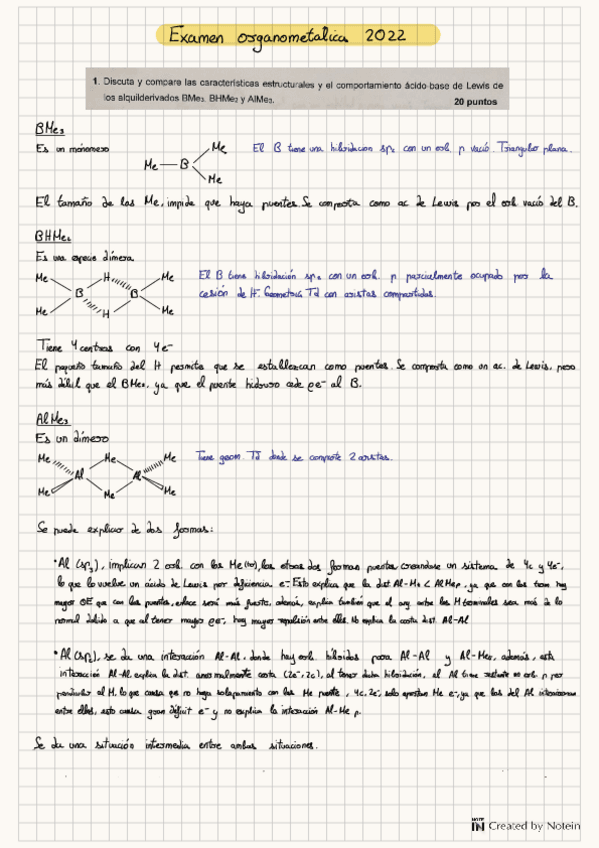 Examen organometalica 2022
1. Discuta y compare las características estructurales y el comportamiento ácido-base de Lewis de
los alquilderivados BMe₃, BHMe₂ y AlMe₃. 20 puntos
BMe₃
Es un monómero
Me B Me Me
El B tiene una hibridacion sp₂ con un orb. p vació. Triangulo plana.
El tamaño de los Me, impide que haya puentes. Se comporta como ac de Lewis por el orb vació del B.
BHMe₂
Es una especie dímera
Me H Me
B B
Me H Me
El B tiene hibridación sp₂ con un orb. p parcialmente ocupado por la
cesión de H⁻. Geometría Td con aristas compartidas.
Tiene 4 centros con 4e⁻
El pequeño tamaño del H permite que se establezcan como puentes. Se comporta como un ac. de Lewis, pero
más débil que el BMe₃, ya que el puente hidruro cede e⁻ al B.
AlMe₃
Es un dímero
Me Me Me
Al Al
Me Me Me
Tiene geom. Td donde se comparte 2 aristas.
Se puede explicar de dos formas:
· Al (sp₃), implican 2 orb. con los Me (to), los otros dos forman puentes creandose un sistema de 4c y 4e⁻,
lo que lo vuelve un ácido de Lewis por deficiencia e⁻. Esto explica que la dist Al-Me < Al Mep, ya que con los term hay
mayor que con los puentes, enlace será más fuerte, además, explica también que el ang. entre los M terminales sea más de lo
normal debido a que al tener mayor e⁻, hay mayor repulsión entre ellos. No explica la corta dist. Al-Al
· Al (sp₂), se da una interacción Al-Al, donde hay orb. híbridos para Al-Al y Al-Me, además, esta
interacción Al-Al explica la dist. anormalmente corta (2e⁻, 2c), al tener dicha hibridación, el Al tiene un orb. p per
pendicular al M, lo que causa que no haya solapamiento con los Me puente, 4c, 2e⁻, solo aportan Me e⁻, ya que los del Al interaccionan
entre ellos, esto causa gran déficit e⁻ y no explica la interacción Al-Me p
Se da una situación intermedia entre ambas situaciones.
NOTE IN Created by Notein